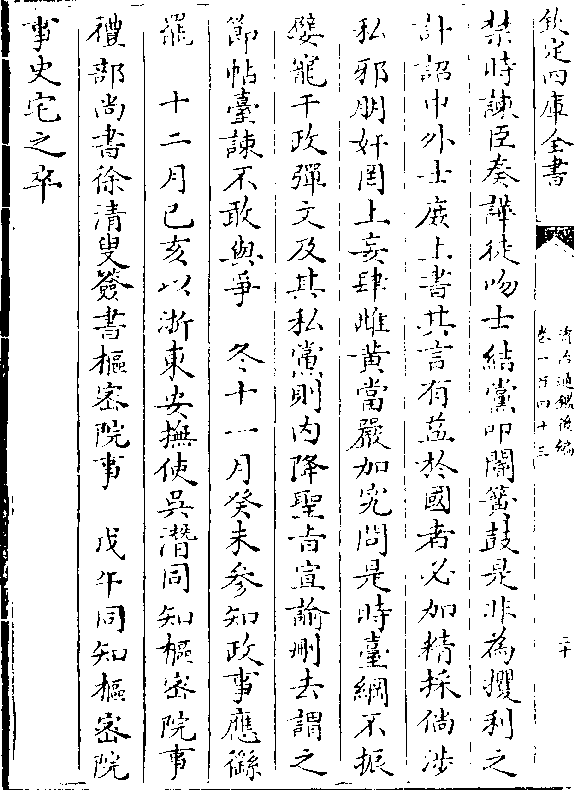 欽定四庫全書
資治通鑑後編
卷一百四十三
二十
禁時諫臣奏譁徒吻士結黨叩閽簧鼓是非為攫利之
計詔中外士庶上書其言有益於國者必加精採倘涉
私邪朋奸罔上妄肆雌黃當嚴加究問是時臺綱不振
嬖寵干政彈文及其私黨則内降聖旨宣諭刪去謂之
節帖臺諫不敢與爭　冬十一月癸未參知政事應㒡
罷　十二月己亥以浙東安撫使吳潛同知樞密院事
禮部尚書徐清叟簽書樞密院事　戊午同知樞密院
事史宅之卒